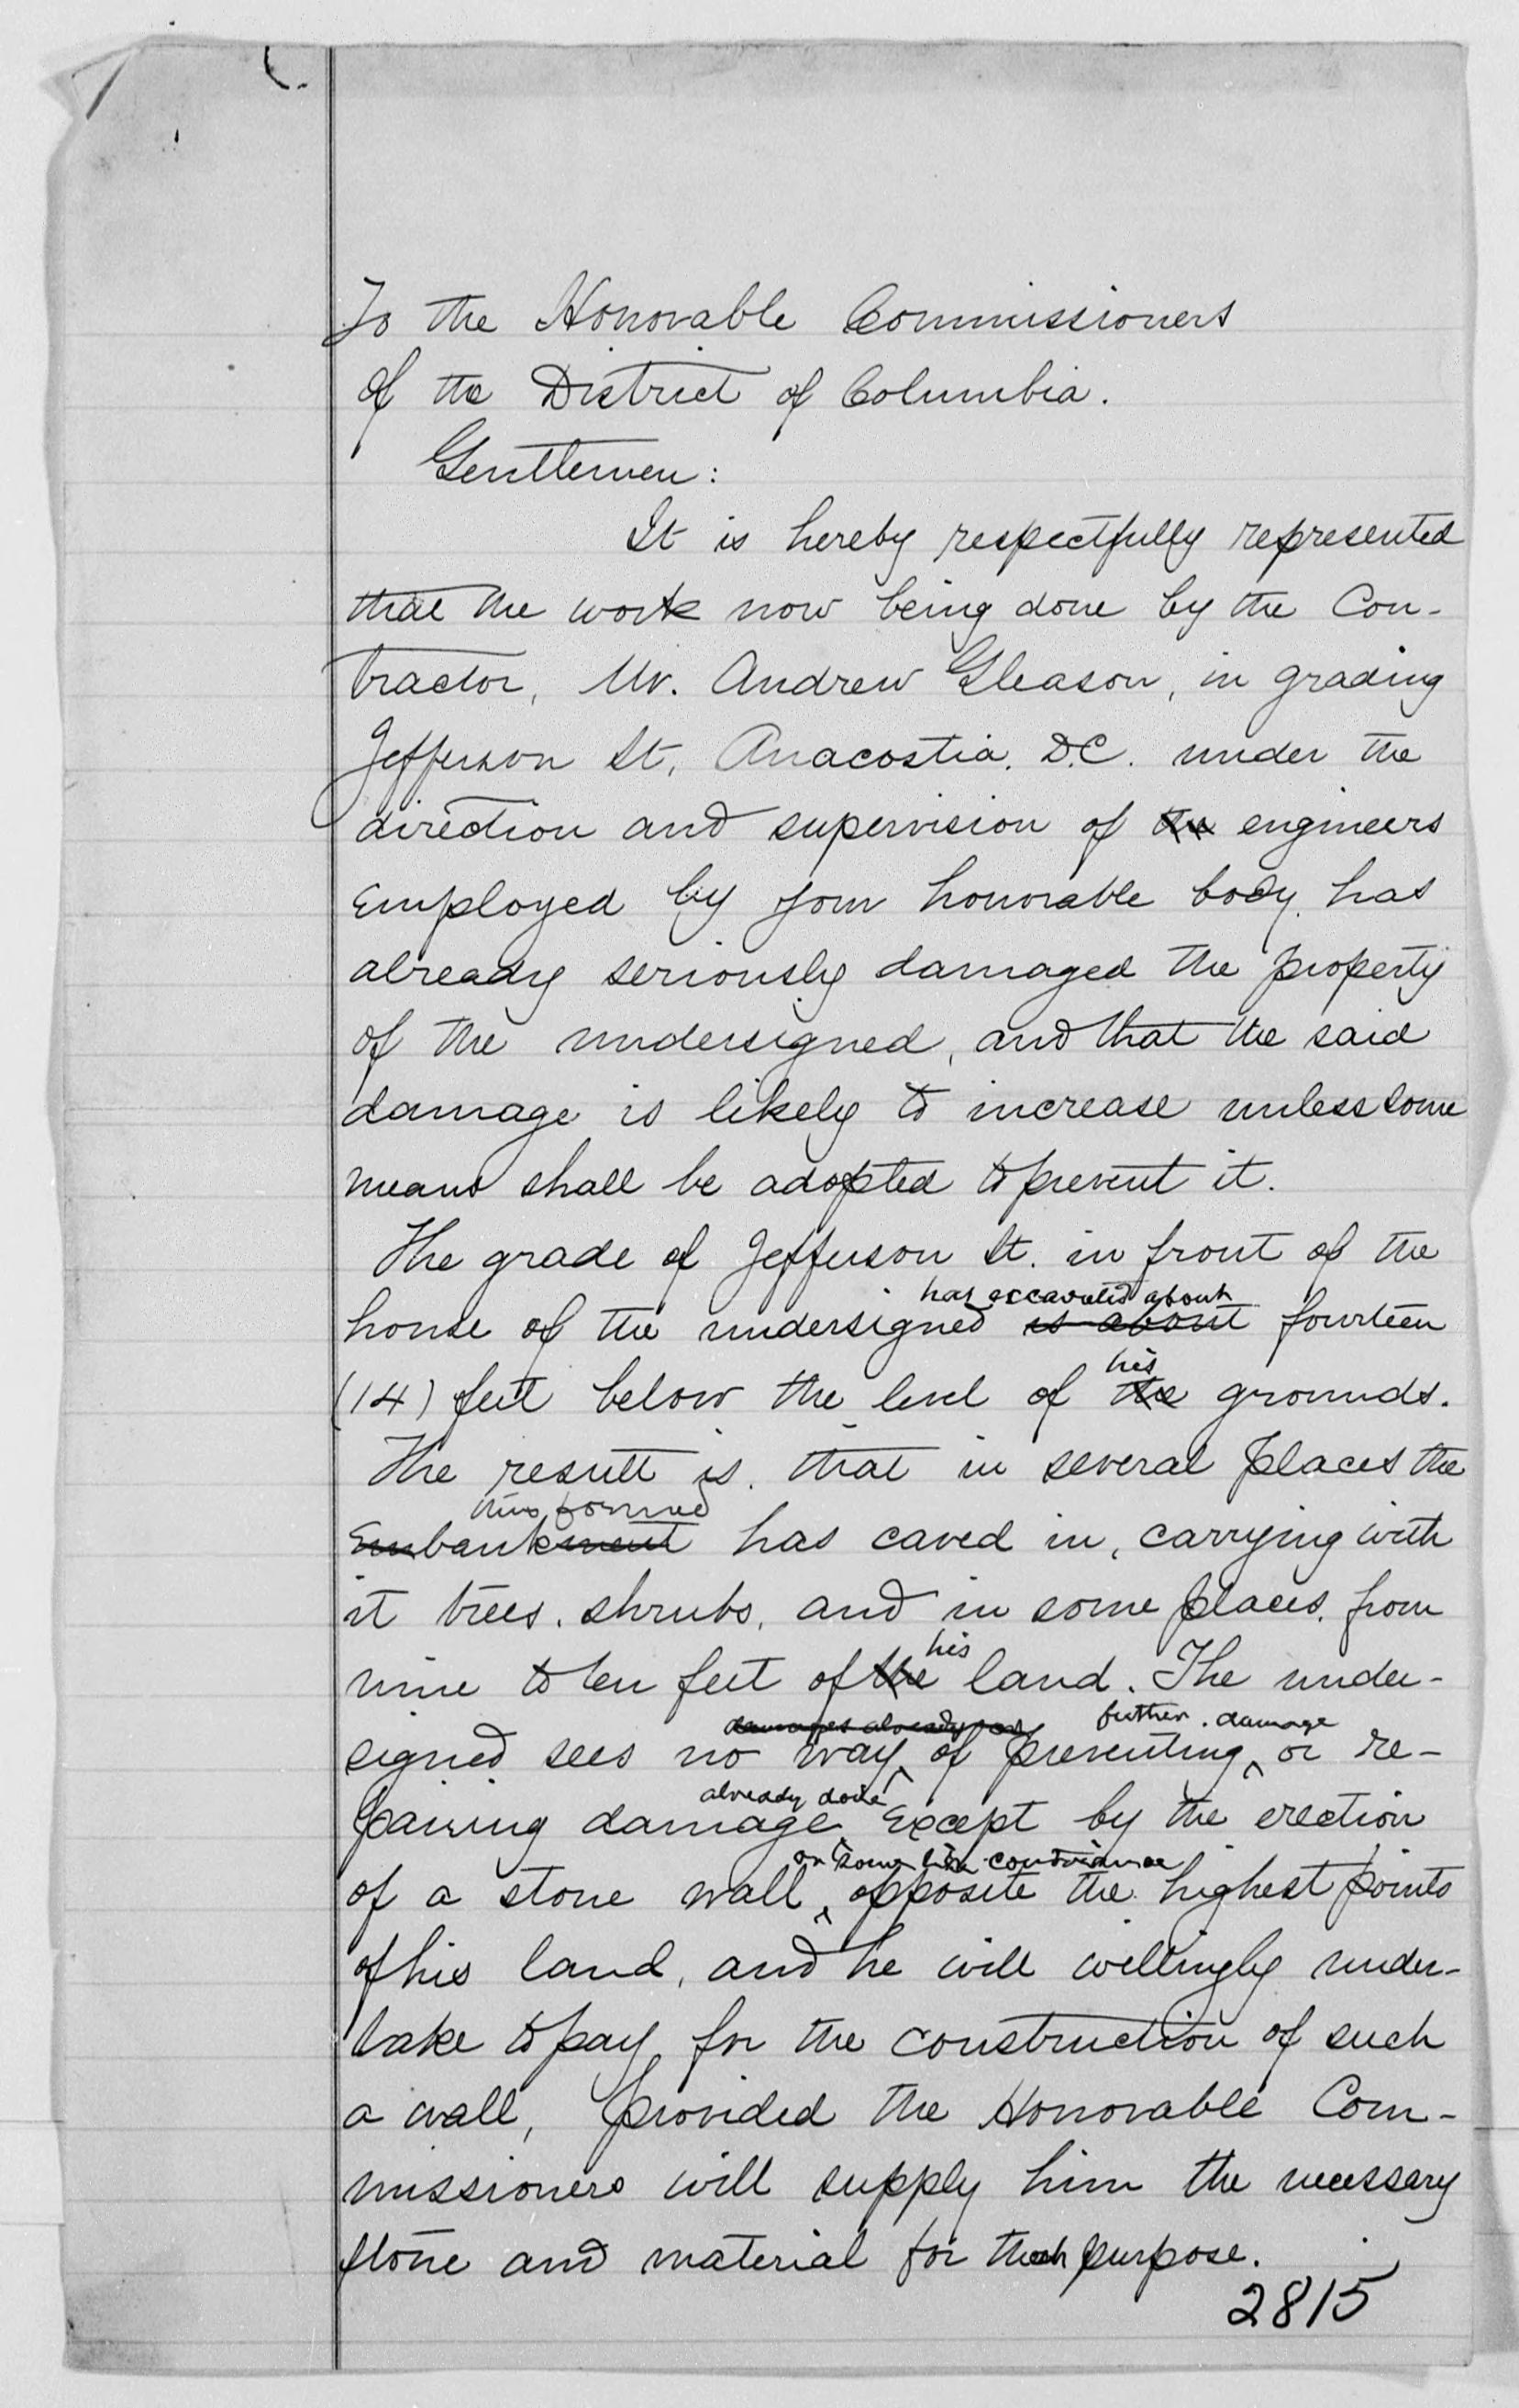 To the Honorable Commissioners
of the District of Columbia.
Gentlemen:
It is hereby respectfully represented
that the work now being done by the Con-
tractor, Mr. Andrew Gleason, in grading
Jefferson St, Anacostia, D.C. under the
direction and supervision of the engineers
employed by your honorable body, has
already seriously damaged the property
of the undersigned, and that the said
damage is likely to increase unless some
means shall be adopted to prevent it.
The grade of Jefferson St. in front of the
has excavated about
house of the undersigned is about fourteen
his
(14) feet below the level of the grounds.
The result is, that in several places the
thus formed
Embankment has caved in, carrying with
it trees, shrubs, and in some places, from
his
nine to ten feet of the land. The under-
damages already further damage
signed sees no way of preventing, or re-
already done
pairing damage except by the erection
or some like contrivance
of a stone wall, opposite the highest points
of his land, and he will willingly under-
take to pay for the construction of such
a wall, provided the Honorable Com-
missioners will supply him the necessary
stone and material for purpose.
2815